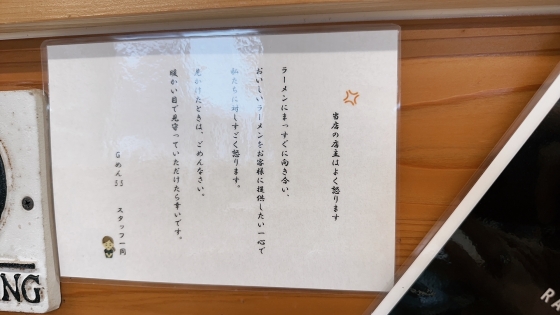 当店の店主はよく怒ります
ラーメンにまっすぐに向き合い、
おいしいラーメンをお客様に提供したい一心で
私たちに対しすごく怒ります。
見かけたときは、ごめんなさい。
暖かい目で見守っていただけたら幸いです。
Gめん33 スタッフ一同
NG
RA